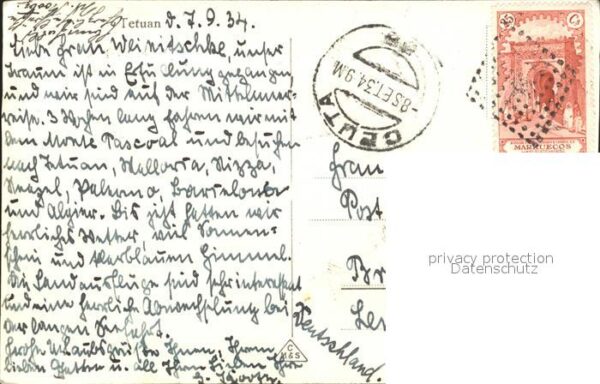 Tetuan d. 7.9.34.
Liebe Frau Weinitschke, unser
Traum ist in Erfüllung gegangen
und wir sind auf der Mittelmeer-
reise. 3 Wochen lang fahren wir mit
dem Monte Pascoal und besuchen
nach Tetuan, Mallorca, Nizza,
Neapel, Palermo, Barcelona
und Algier. Bis jetzt hatten wir
herrliches Wetter, viel Sonnen-
schein und tiefblauen Himmel.
Die Landausflüge sind sehr interessant
und eine herrliche Abwechslung bei
der langen Seefahrt.
Große Urlaubsgrüße Ihnen, Ihrem
lieben Gatten u. all Ihren Lieben Ihre
CEUTA
-8 SET.34.9M
25
Cs
MARRUECOS
Frau
Post
Br
Deutschland.
C
M&S
privacy protection
Datenschutz